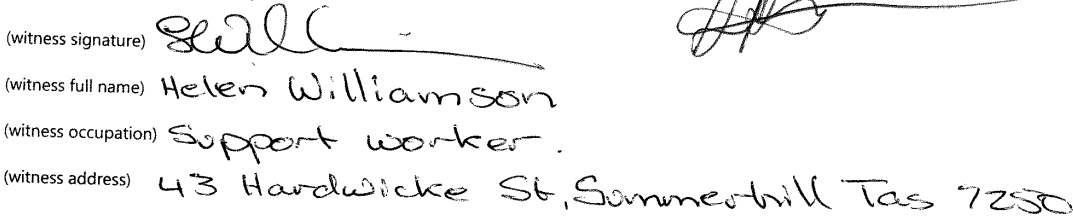 (witness signature)
(witness full name) Helen Williamson
(witness occupation) Support worker.
(witness address) 43 Hardwicke St, Summerhill Tas 7250